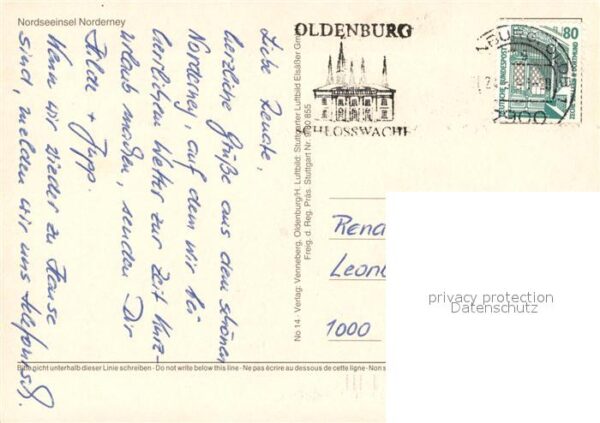 Nordseeinsel Norderney
Liebe Renate,
herzliche Grüße aus dem schönen
Norderney, auf dem wir bei
herrlichem Wetter zur Zeit Kurz-
urlaub machen, senden Dir
Hilde + Jupp.
Wenn wir wieder zu Hause
sind, melden wir uns telefonisch.
No 14 · Verlag: Venneberg, Oldenburg/H. Luftbild: Stuttgarter Luftbild Elsäßer
Freig. d. Reg. Präs. Stuttgart Nr.
OLDENBURG
SCHLOSSWACHE
2900
80
DEUTSCHE BUNDESPOST
Rena
Leon
1000
privacy protection
Datenschutz
Bitte nicht unterhalb dieser Linie schreiben · Do not write below this line · Ne pas écrire au dessous de cette ligne